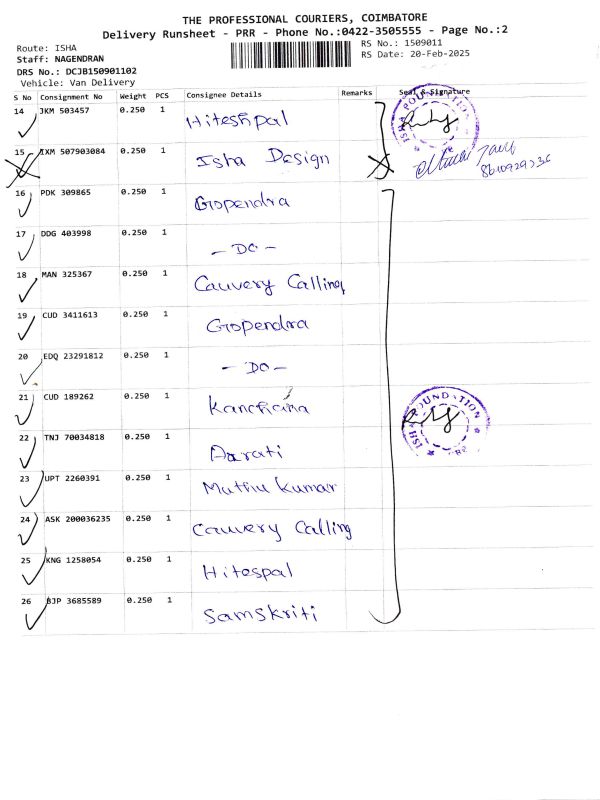 THE PROFESSIONAL COURIERS, COIMBATORE
Delivery Runsheet - PRR - Phone No.:0422-3505555 - Page No.:2
Route: ISHA
RS No.: 1509011
Staff: NAGENDRAN
RS Date: 20-Feb-2025
DRS No.: DCJB150901102
Vehicle: Van Delivery
S No Consignment No Weight PCS Consignee Details Remarks Seal & Signature
14 JKM 503457 0.250 1 Hiteshpal
ISHA FOUNDATION
15 IXM 507903084 0.250 1 Isha Design
16 PDK 309865 0.250 1 Gopendra
17 DDG 403998 0.250 1 - DO -
18 MAN 325367 0.250 1 Cauvery Calling
19 CUD 3411613 0.250 1 Gopendra
20 EDQ 23291812 0.250 1 - DO -
21 CUD 189262 0.250 1
ISHA FOUNDATION
22 TNJ 70034818 0.250 1 Aarati
23 UPT 2260391 0.250 1 Muthu Kumar
24 ASK 200036235 0.250 1 Cauvery Calling
25 KNG 1258054 0.250 1 Hitespal
26 BJP 3685589 0.250 1 Samskriti